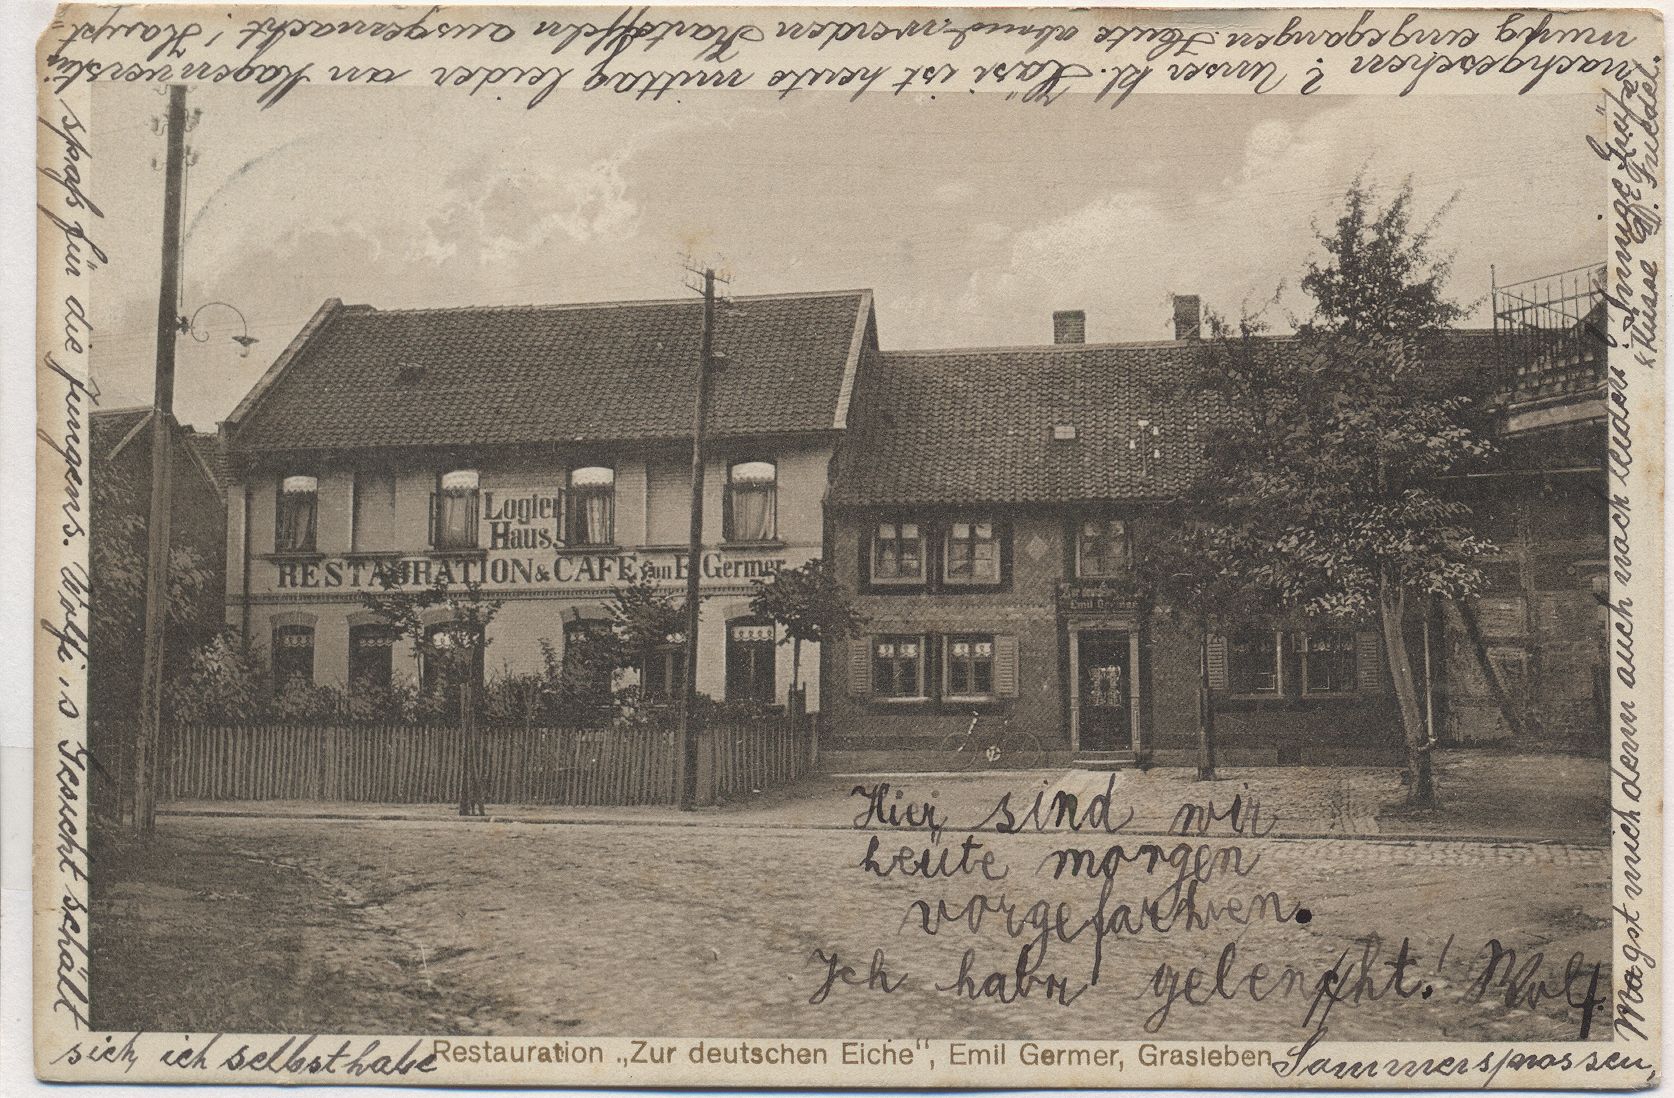 nachgesehen? Unser kl. Hasi ist heute mittag leider an Magenverstim
mung eingegangen. Heute abend werden Kartoffeln ausgemacht, Haupt-
spaß für die Jungens. Wolfi's Gesicht schält
sich, ich selbst habe
Sommersprossen,
Magst mich denn auch noch leiden? Innige Grüße
Küsse Friedel.
Logier
Haus.
RESTAURATION & CAFÉ von E. Germer
Emil Germer
Hier sind wir
heute morgen
vorgefahren.
Ich habe gelenkt! Wolf.
Restauration „Zur deutschen Eiche", Emil Germer, Grasleben